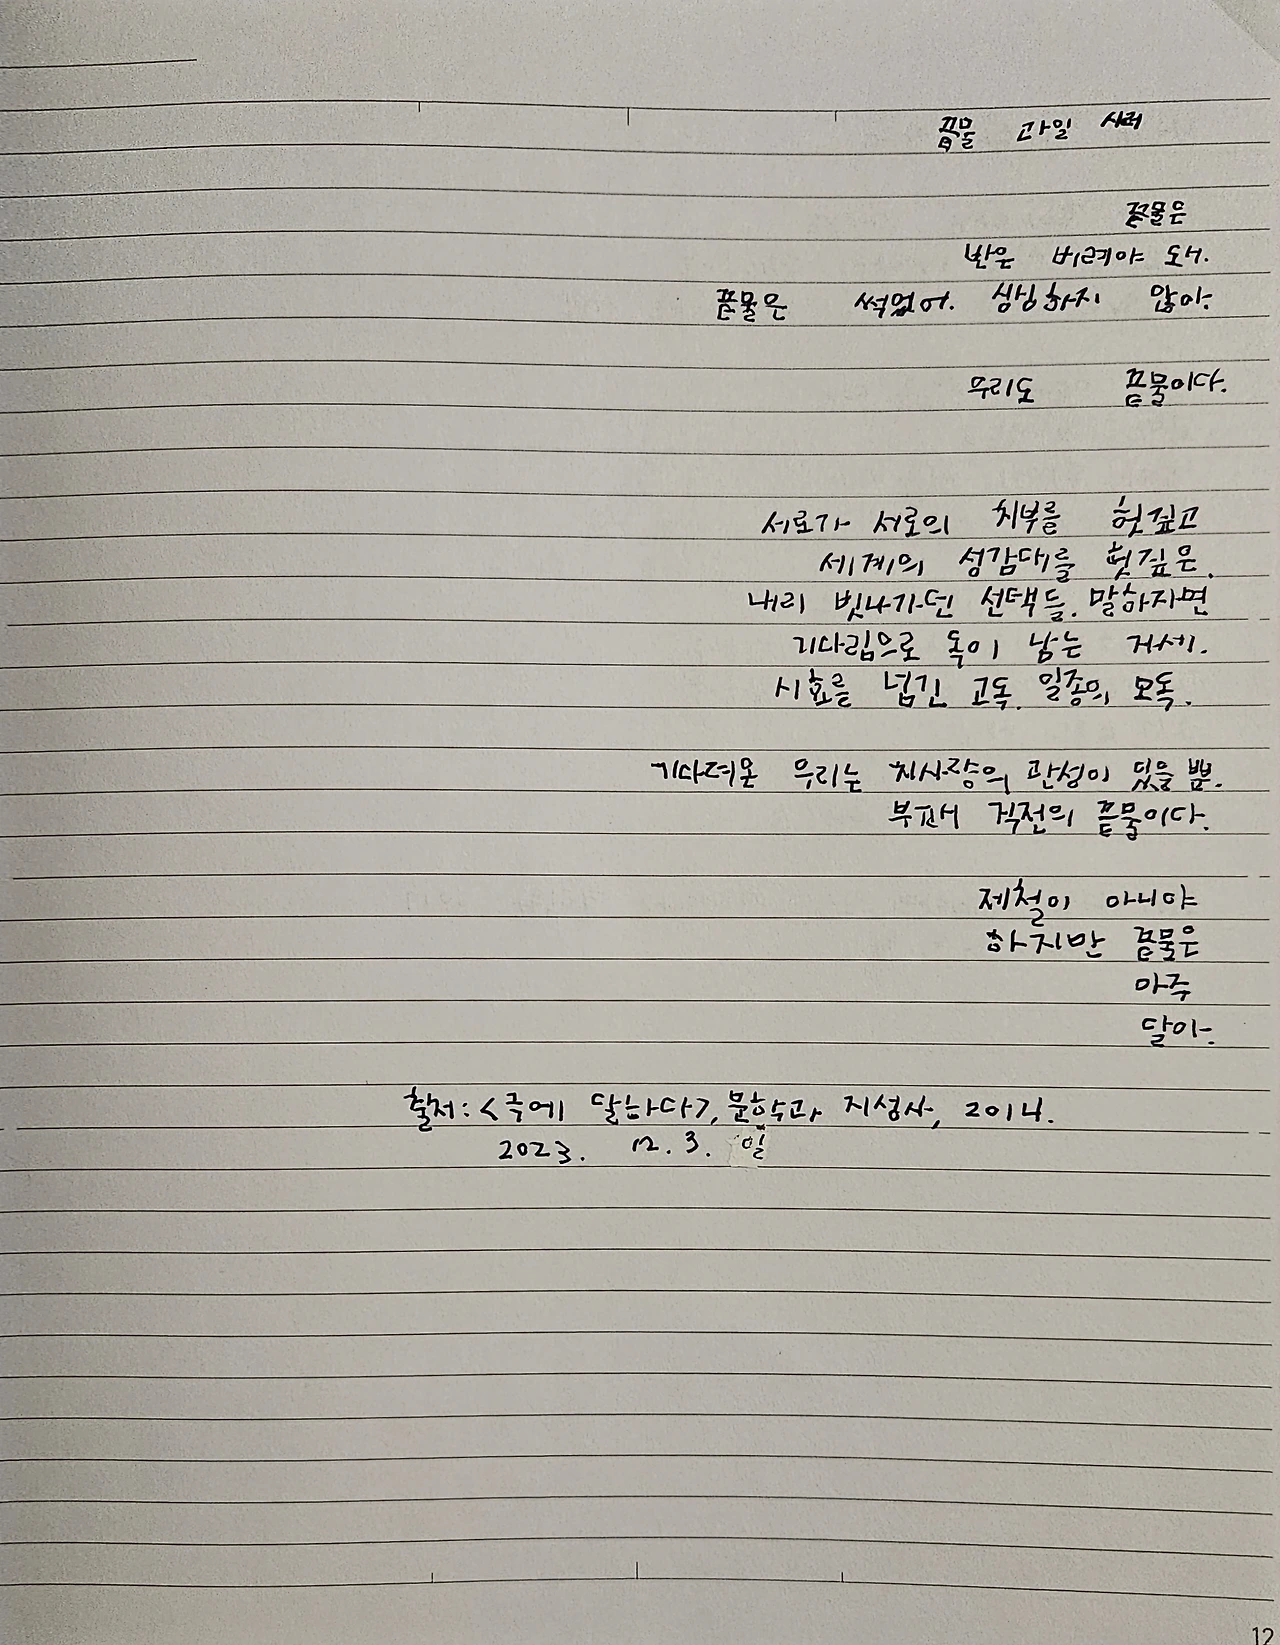 끝물 과일 사러
끝물은
반은 버려야 돼.
끝물은 썩었어. 싱싱하지 않아.
우리도 끝물이다.
서로가 서로의 치부를 헛짚고
세계의 성감대를 헛짚은.
내리 빗나가던 선택들. 말하자면
기다림으로 독이 남는 거세.
시효를 넘긴 고독. 일종의 모독.
기다려온 우리는 치사량의 관성이 있을 뿐.
부패 직전의 끝물이다.
제철이 아니야
하지만 끝물은
아주
달아.
출처: <극에 달하다>, 문학과 지성사, 2014.
2023. 12. 3. 일
12